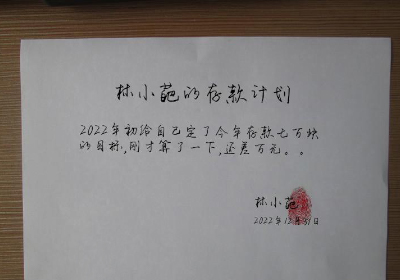 林小葩的存款计划
2022年初给自己定了今年存款七万块
的目标,刚才算了一下,还差万元。。
林小葩
2022年12月31日